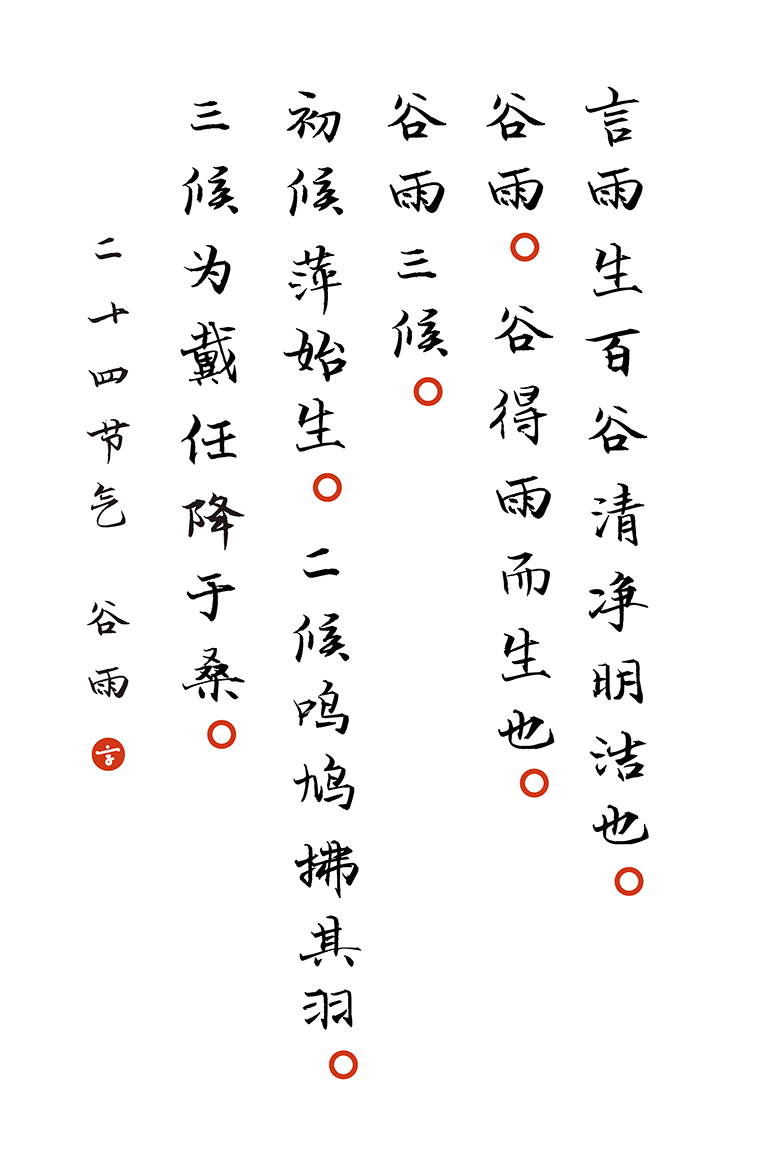 言雨生百谷清净明洁也。
谷雨。谷得雨而生也。
谷雨三候。
初候萍始生。二候鸣鸠拂其羽。
三候为戴任降于桑。
二十四节气 谷雨